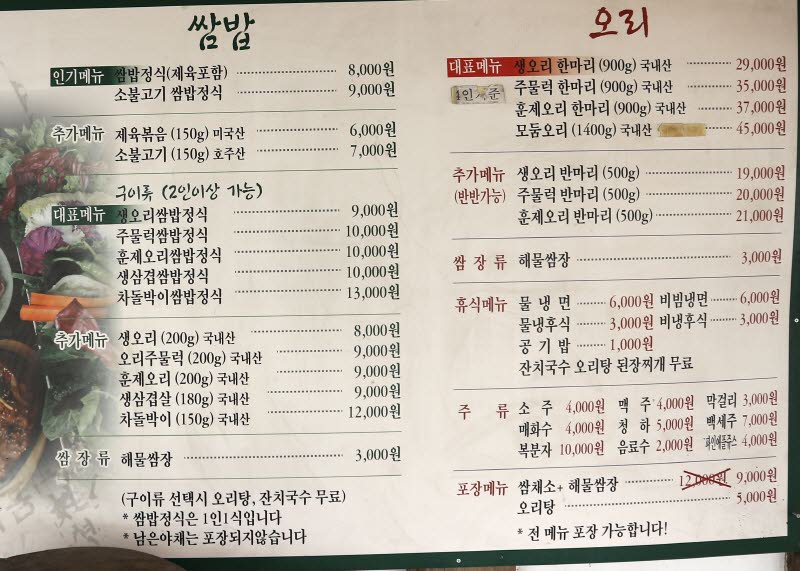 쌈밥
인기메뉴 쌈밥정식(제육포함) 8,000원
소불고기 쌈밥정식 9,000원
추가메뉴 제육볶음 (150g) 미국산 6,000원
소불고기 (150g) 호주산 7,000원
구이류 (2인이상 가능)
대표메뉴 생오리쌈밥정식 9,000원
주물럭쌈밥정식 10,000원
훈제오리쌈밥정식 10,000원
생삼겹쌈밥정식 10,000원
차돌박이쌈밥정식 13,000원
추가메뉴 생오리 (200g) 국내산 8,000원
오리주물럭 (200g) 국내산 9,000원
훈제오리 (200g) 국내산 9,000원
생삼겹살 (180g) 국내산 9,000원
차돌박이 (150g) 국내산 12,000원
쌈장류 해물쌈장 3,000원
(구이류 선택시 오리탕, 잔치국수 무료)
* 쌈밥정식은 1인1식입니다
* 남은야채는 포장되지않습니다
오리
대표메뉴 생오리 한마리 (900g) 국내산 29,000원
주물럭 한마리 (900g) 국내산 35,000원
훈제오리 한마리 (900g) 국내산 37,000원
모둠오리 (1400g) 국내산 45,000원
추가메뉴 생오리 반마리 (500g) 19,000원
(반반가능) 주물럭 반마리 (500g) 20,000원
훈제오리 반마리 (500g) 21,000원
쌈장류 해물쌈장 3,000원
휴식메뉴 물냉면 6,000원 비빔냉면 6,000원
물냉후식 3,000원 비냉후식 3,000원
공기밥 1,000원
잔치국수 오리탕 된장찌개 무료
주류 소주 4,000원 맥주 4,000원 막걸리 3,000원
매화수 4,000원 청하 5,000원 백세주 7,000원
복분자 10,000원 음료수 2,000원 파인애플쥬스 4,000원
포장메뉴 쌈채소+ 해물쌈장 12,000원 9,000원
오리탕 5,000원
* 전 메뉴 포장 가능합니다!